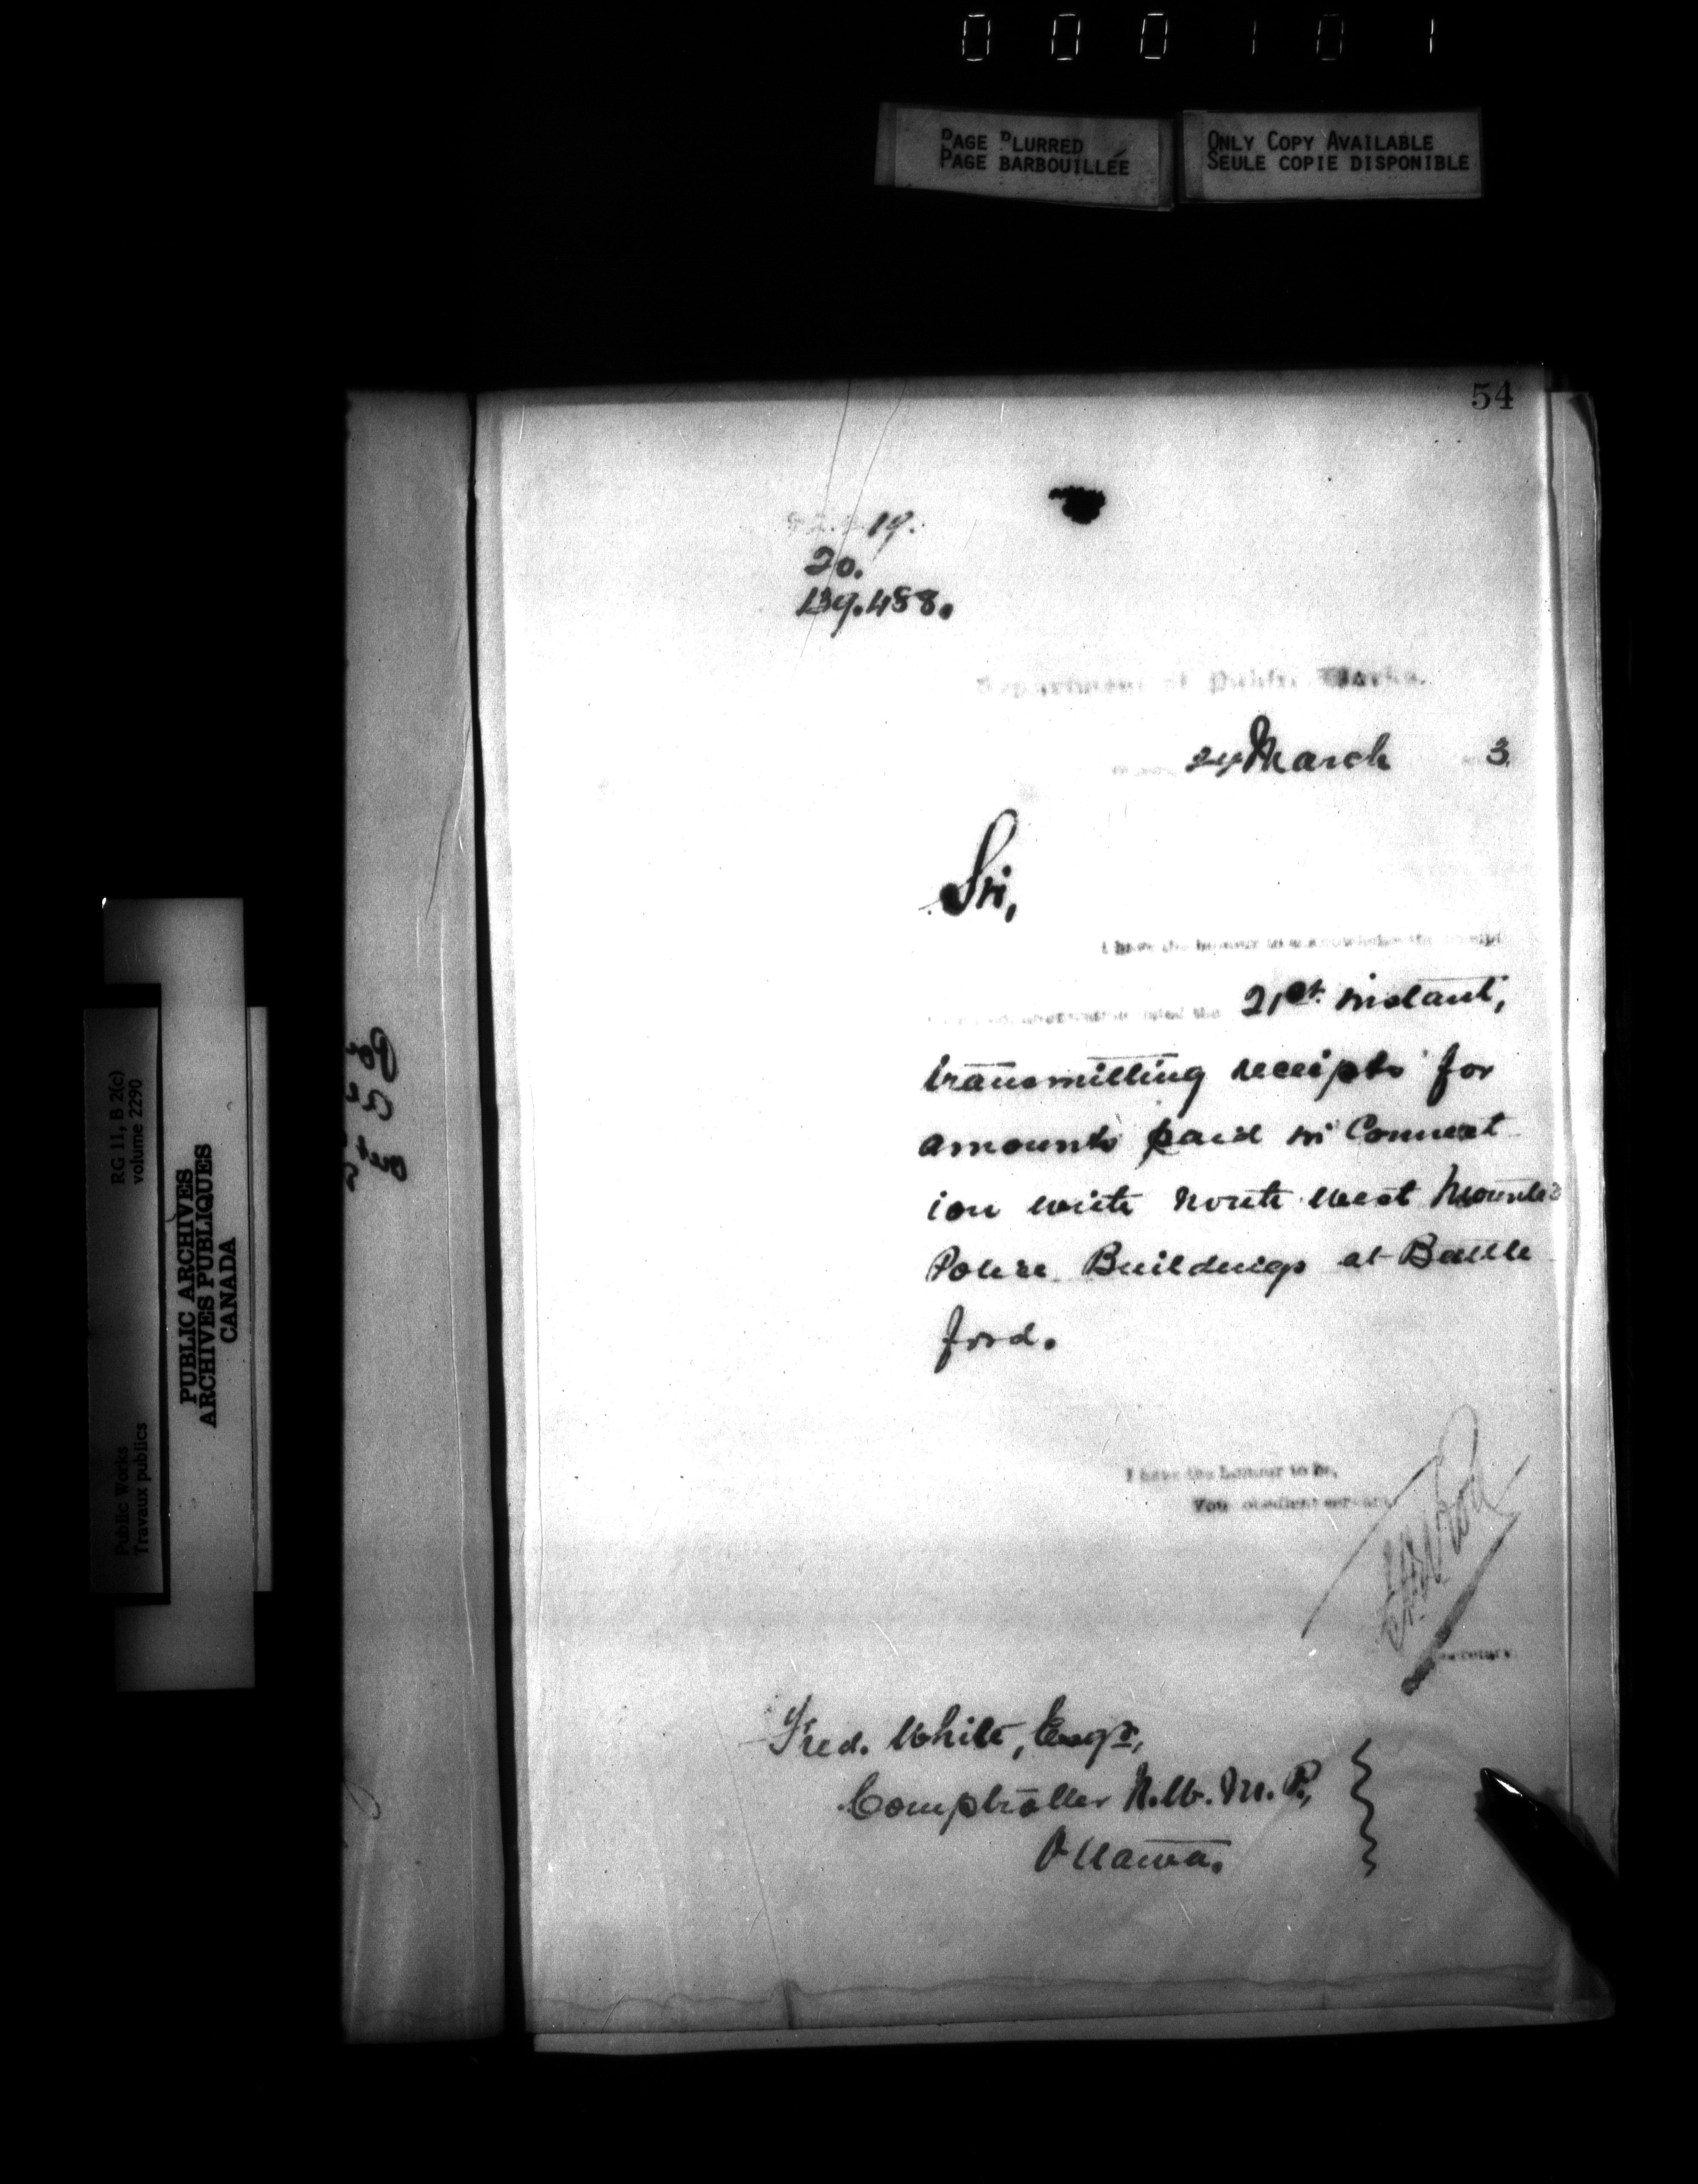 000101
PAGE BLURRED
PAGE BARBOUILLÉE
ONLY COPY AVAILABLE
SEULE COPIE DISPONIBLE
54
19.
20.
139.488.
Department of Public Works.
24 March 3.
Sir,
I have the honour to acknowledge the receipt
dated the 21st. instant,
transmitting receipts for
amounts paid in Connect
ion with North West Mounted
Police Buildings at Battle
ford.
I have the honour to be,
Your obedient servant,
Secretary.
Fred. White, Esqr.,
Comptroller N.W.M.P.,
Ottawa.
RG 11, B 2(c)
volume 2290
Public Works
Travaux publics
PUBLIC ARCHIVES
ARCHIVES PUBLIQUES
CANADA